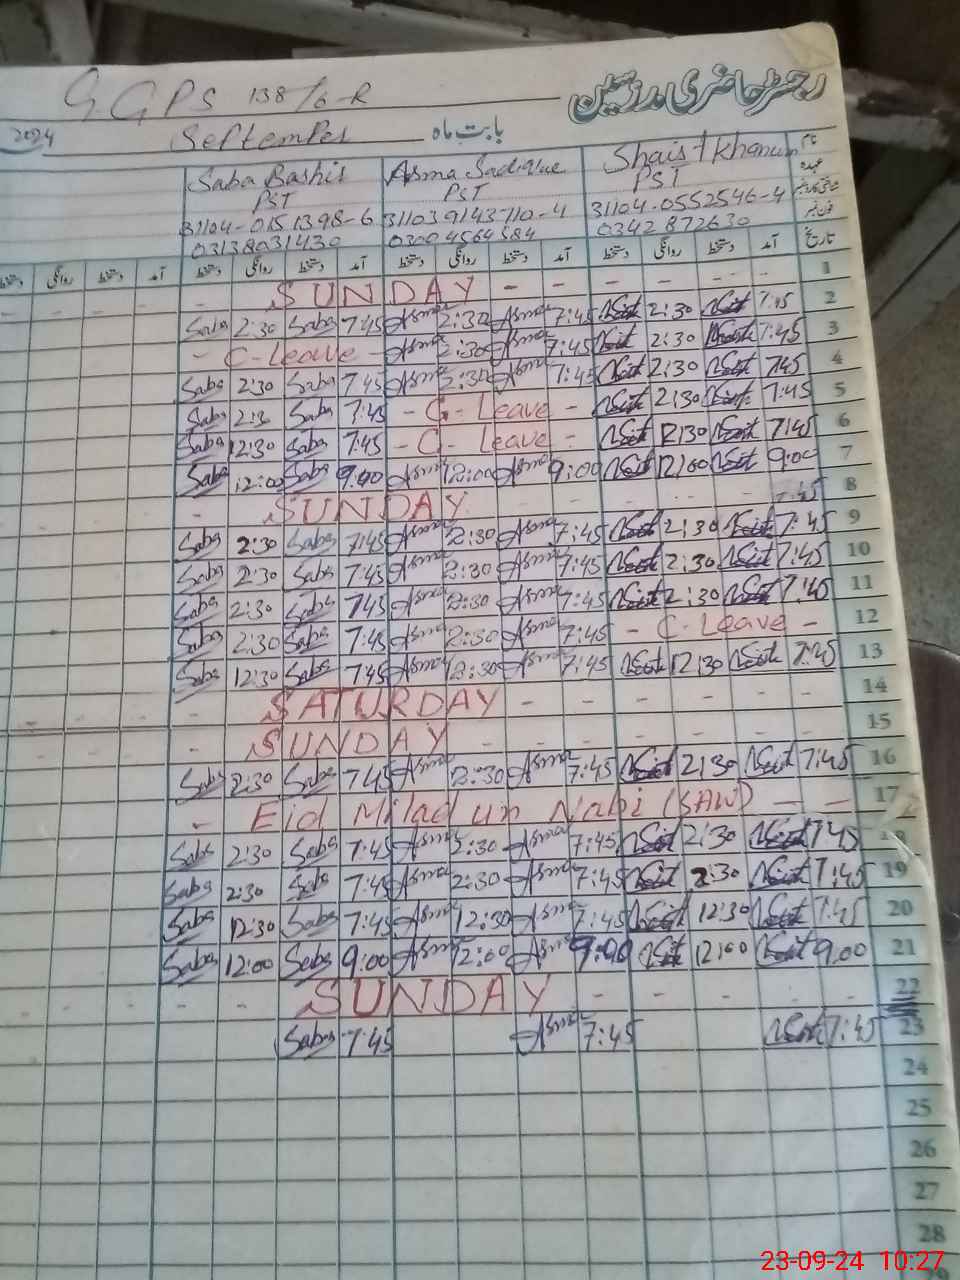 G.GPS 138/6-R رجسٹر حاضری مدرسین
2024 September بابت ماہ
Saba Bashir Asma Sadique Shaist Khanum نام
PST PST PST عہدہ
31104-0151398-6 31103 9143710-4 31104-0552546-4
03138031430 03004564584 0342 872630
دستخط روانگی دستخط آمد دستخط روانگی دستخط آمد دستخط روانگی دستخط آمد تاریخ
- SUNDAY - - - - - - 1
Saba 2:30 Saba 7:45 Asma 2:30 Asma 7:45 2:30 7:45 2
- C-Leave - Asma 2:30 Asma 7:45 2:30 7:45 3
Saba 2:30 Saba 7:45 Asma 2:30 Asma 7:45 2:30 7:45 4
Saba 2:30 Saba 7:45 - C-Leave - 2:30 7:45 5
Saba 12:30 Saba 7:45 - C-Leave - 12:30 7:45 6
Saba 12:00 Saba 9:00 Asma 12:00 Asma 9:00 12:00 9:00 7
- SUNDAY - - - - 8
Saba 2:30 Saba 7:45 Asma 2:30 Asma 7:45 2:30 7:45 9
Saba 2:30 Saba 7:45 Asma 2:30 Asma 7:45 2:30 7:45 10
Saba 2:30 Saba 745 Asma 2:30 Asma 7:45 2:30 7:45 11
Saba 2:30 Saba 7:45 Asma 2:30 Asma 7:45 - C-Leave - 12
Saba 12:30 Saba 7:45 Asma 12:30 Asma 7:45 12:30 7:45 13
- SATURDAY - - - - - - 14
- SUNDAY - - - - - - 15
Saba 2:30 Saba 745 Asma 2:30 Asma 7:45 2:30 7:45 16
- Eid Milad un Nabi (SAW) - - 17
Saba 2:30 Saba 7:45 Asma 2:30 Asma 7:45 2:30 7:45 18
Saba 2:30 Saba 7:45 Asma 2:30 Asma 7:45 2:30 7:45 19
Saba 12:30 Saba 7:45 Asma 12:30 Asma 7:45 12:30 7:45 20
Saba 12:00 Saba 9:00 Asma 12:00 Asma 9:00 12:00 9:00 21
- SUNDAY - - - - - 22
Saba 7:45 Asma 7:45 7:45 23
24
25
26
27
28
23-09-24 10:27